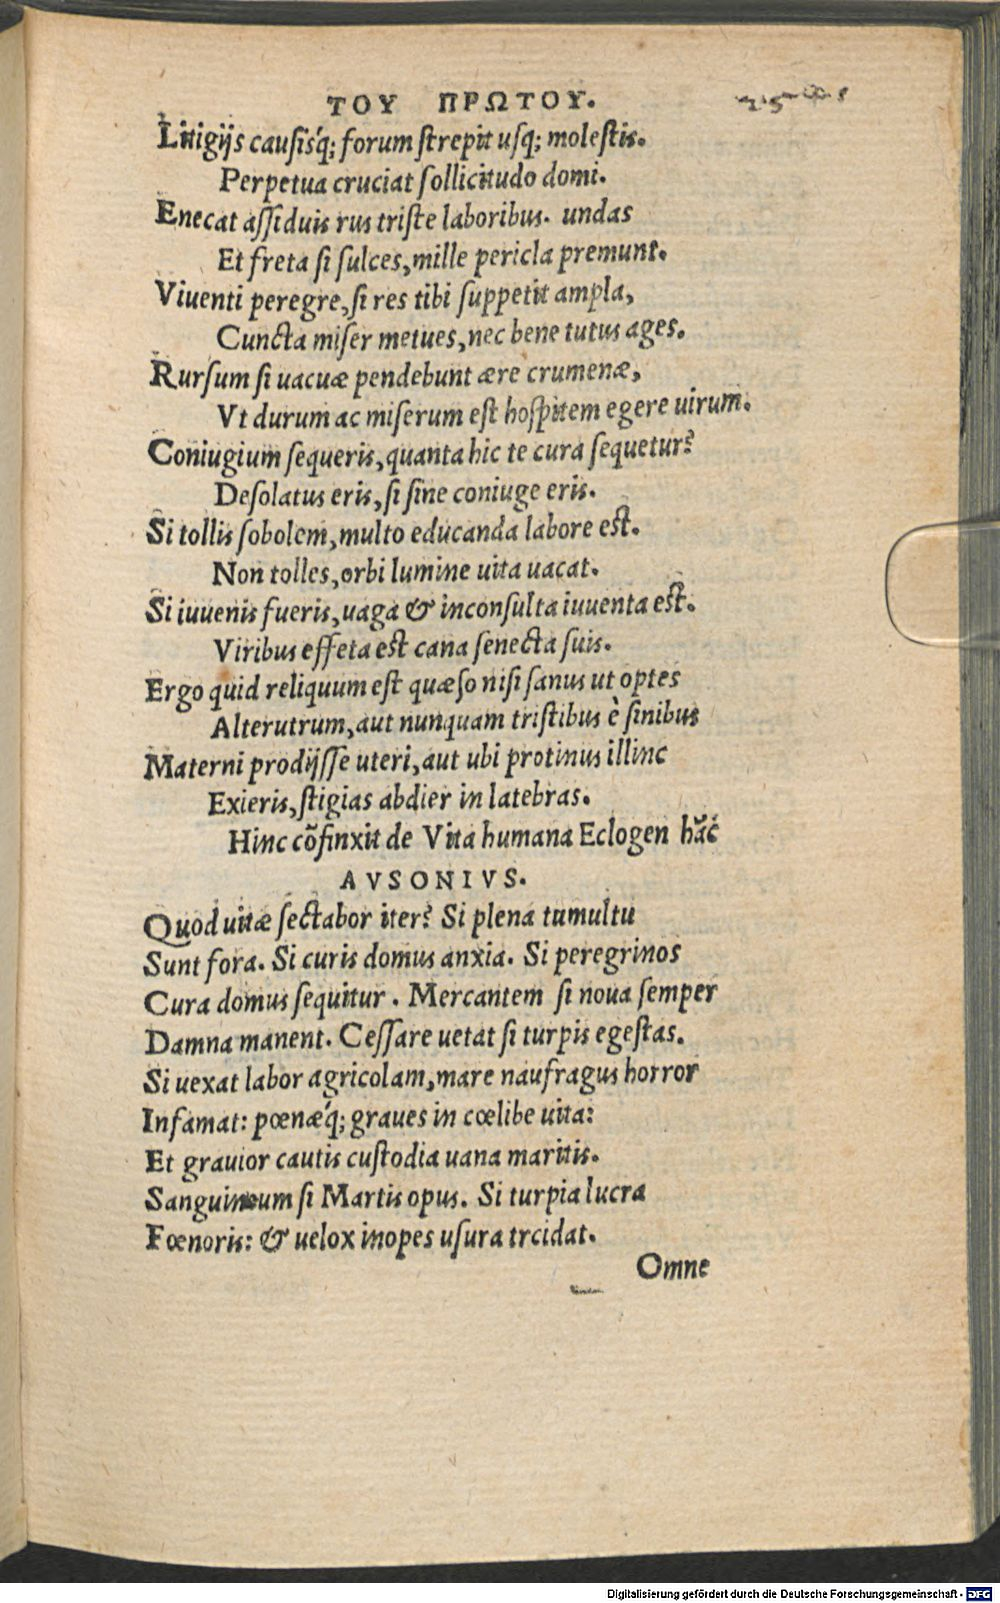 ΤΟΥ ΠΡΩΤΟΥ.
Litigijs causisq́; forum strepit usq; molestis.
Perpetua cruciat sollicitudo domi.
Enecat assiduis rus triste laboribus. undas
Et freta si sulces, mille pericla premunt.
Viuenti peregre, si res tibi suppetit ampla,
Cuncta miser metues, nec bene tutus ages.
Rursum si uacuæ pendebunt ære crumenæ,
Vt durum ac miserum est hospitem egere uirum.
Coniugium sequeris, quanta hic te cura sequetur?
Desolatus eris, si sine coniuge eris.
Si tollis sobolem, multo educanda labore est.
Non tolles, orbi lumine uita uacat.
Si iuuenis fueris, uaga & inconsulta iuuenta est.
Viribus effeta est cana senecta suis.
Ergo quid reliquum est quæso nisi sanus ut optes
Alterutrum, aut nunquam tristibus è sinibus
Materni prodijsse uteri, aut ubi protinus illinc
Exieris, stigias abdier in latebras.
Hinc cõfinxit de Vita humana Eclogen hãc
AVSONIVS.
Quod uitæ sectabor iter? Si plena tumultu
Sunt fora. Si curis domus anxia. Si peregrinos
Cura domus sequitur. Mercantem si noua semper
Damna manent. Cessare uetat si turpis egestas.
Si uexat labor agricolam, mare naufragus horror
Infamat: pœnæq́; graues in cœlibe uita:
Et grauior cautis custodia uana maritis.
Sanguineum si Martis opus. Si turpia lucra
Fœnoris: & uelox inopes usura trcidat.
Omne
Digitalisierung gefördert durch die Deutsche Forschungsgemeinschaft - DFG